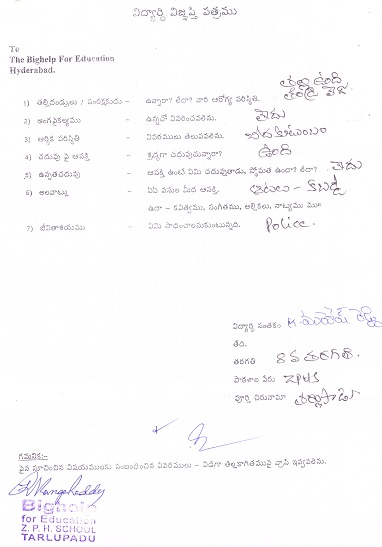 విద్యార్థి విజ్ఞప్తి పత్రము
To
The Bighelp For Education
Hyderabad.
తల్లి ఉంది
1) తల్లిదండ్రులు / సంరక్షకుడు - ఉన్నారా? లేదా? వారి ఆరోగ్య పరిస్థితి. తండ్రి
2) అంగవైకల్యము - ఉన్నచో వివరించవలెను. లేదు
3) ఆర్థిక పరిస్థితి - వివరములు తెలుపవలెను. బీద కుటుంబం
4) చదువు పై ఆసక్తి - శ్రద్ధగా చదువుచున్నారా? ఉంది
5) ఉన్నతచదువు - ఆసక్తి ఉంటే ఏమి చదువుతాడు, స్తోమత ఉందా? లేదా? లేదు
6) అలవాట్లు - ఏఏ పనుల మీద ఆసక్తి. ఆటలు - కబడ్డీ
ఉదా - కవిత్వము, సంగీతము, అల్లికలు, నాట్యము మొ॥
7) జీవితాశయము - ఏమి సాధించాలనుకుంటున్నది. Police.
విద్యార్థి సంతకం
తేది.
తరగతి 8వ తరగతి.
పాఠశాల పేరు ZPHS
పూర్తి చిరునామా తర్లుపాడు
గమనిక:-
పైన సూచించిన విషయములకు సంబంధించిన వివరములు - విడిగా తెల్లకాగితముపై వ్రాసి ఇవ్వవలెను.
Bighelp
for Education
Z. P. H. SCHOOL
TARLUPADU